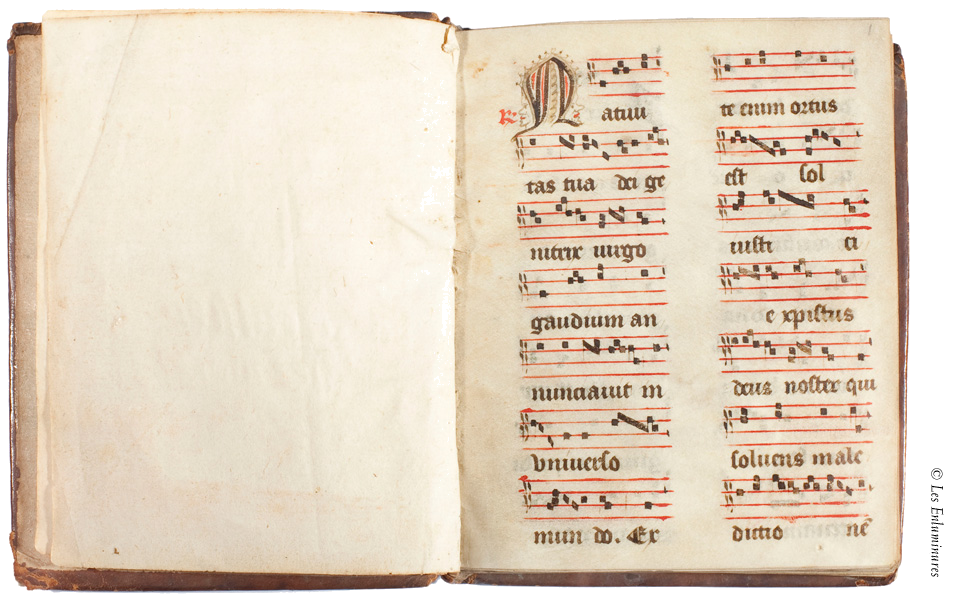 R. Natiui
tas tua dei ge
nitrix uirgo
gaudium an
nunciauit in
vniuerso
mun do. Ex
1
te enim ortus
est sol
iusti ci
e xpistus
deus noster qui
soluens male
dictio nē
© Les Enluminures